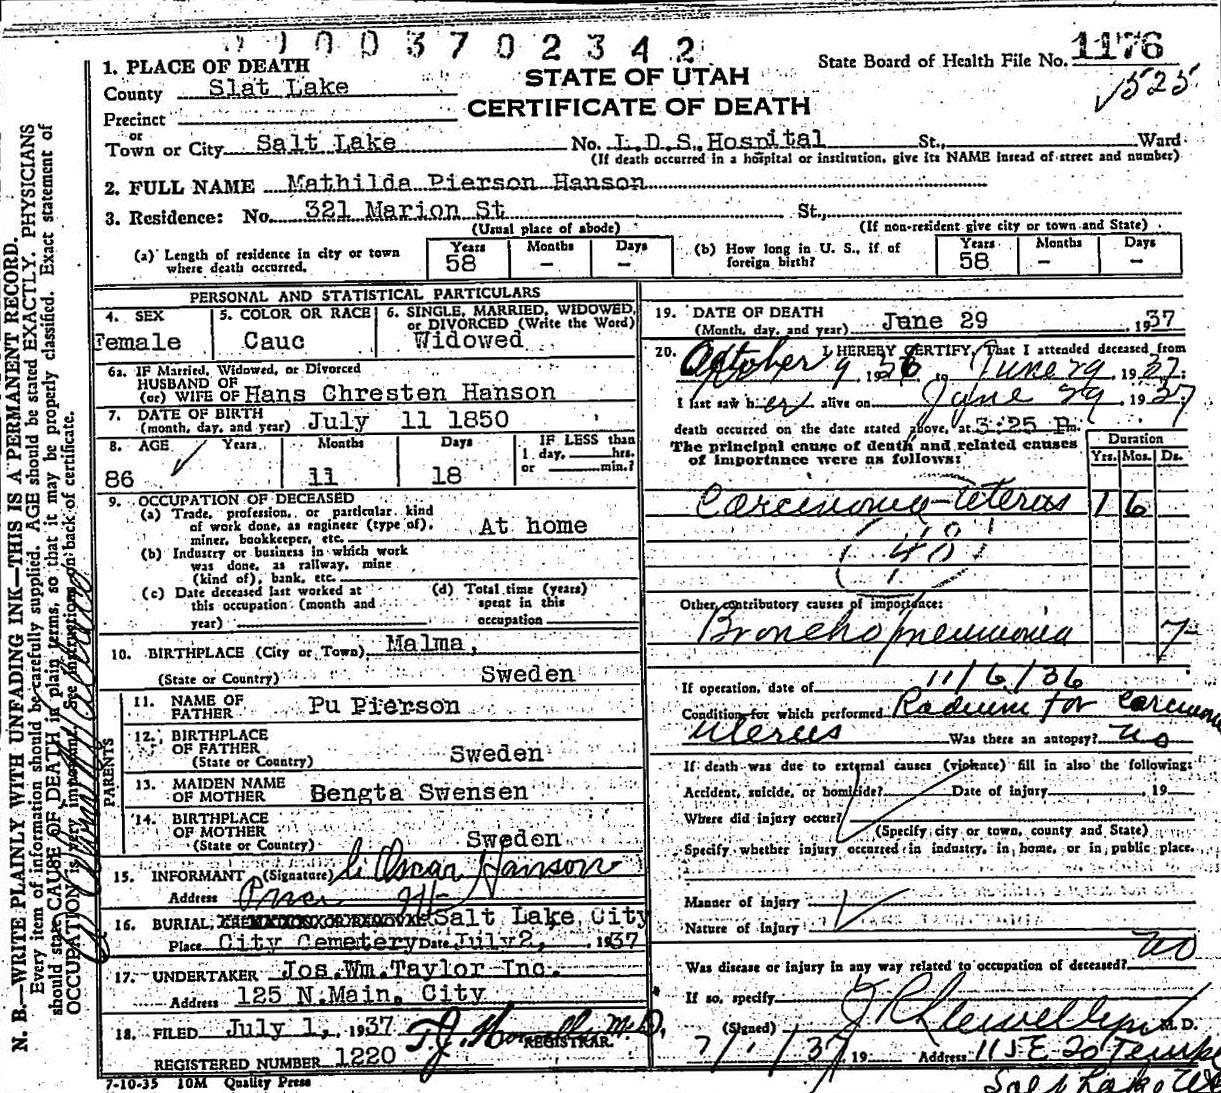 0 1 0 0 3 7 0 2 3 4 2
State Board of Health File No. 1176
√525
STATE OF UTAH
CERTIFICATE OF DEATH
1. PLACE OF DEATH
County Slat Lake
Precinct
or
Town or City Salt Lake No. L.D.S. Hospital St., Ward
(If death occurred in a hospital or institution, give its NAME insead of street and number)
2. FULL NAME Mathilda Pierson Hanson
3. Residence: No. 321 Marion St St.,
(Usual place of abode) (If non-resident give city or town and State)
(a) Length of residence in city or town where death occurred. Years 58 Months - Days -
(b) How long in U. S., if of foreign birth? Years 58 Months - Days -
PERSONAL AND STATISTICAL PARTICULARS
4. SEX Female
5. COLOR OR RACE Cauc
6. SINGLE, MARRIED, WIDOWED, or DIVORCED (Write the Word) Widowed
6a. IF Married, Widowed, or Divorced
HUSBAND OF
(or) WIFE OF Hans Chresten Hanson
7. DATE OF BIRTH
(month, day, and year) July 11 1850
8. AGE Years 86 Months 11 Days 18
IF LESS than
1 day, hrs.
or min.?
9. OCCUPATION OF DECEASED
(a) Trade, profession, or particular kind
of work done, as engineer (type of),
miner, bookkeeper, etc. At home
(b) Industry or business in which work
was done, as railway, mine
(kind of), bank, etc.
(c) Date deceased last worked at
this occupation (month and
year)
(d) Total time (years)
spent in this
occupation
10. BIRTHPLACE (City or Town) Malma,
(State or Country) Sweden
PARENTS
11. NAME OF
FATHER Pu Pierson
12. BIRTHPLACE
OF FATHER
(State or Country) Sweden
13. MAIDEN NAME
OF MOTHER Bengta Swensen
14. BIRTHPLACE
OF MOTHER
(State or Country) Sweden
15. INFORMANT (Signature) Oscar Hanson
Address
16. BURIAL, Salt Lake City
Place City Cemetery Date July 2, 1937
17. UNDERTAKER Jos.Wm.Taylor Inc.
Address 125 N.Main, City
18. FILED July 1, 1937
REGISTRAR.
REGISTERED NUMBER 1220
7-10-35 10M Quality Press
19. DATE OF DEATH
(Month, day, and year) June 29 1937
20. I HEREBY CERTIFY, That I attended deceased from
October 9 1936 to June 29 1937:
I last saw her alive on June 29, 1937
death occurred on the date stated above, at 3:25 P.m.
The principal cause of death and related causes
of importance were as follows:
Duration
Yrs. Mos. Ds.
Carcinoma-Uterus 1 6
48
Other contributory causes of importance:
Bronchopneumonia 7
If operation, date of 11/6/36
Condition for which performed Radium for Carcinoma
Uterus Was there an autopsy? No
If death was due to external causes (violence) fill in also the following:
Accident, suicide, or homicide? Date of injury , 19
Where did injury occur?
(Specify city or town, county and State)
Specify whether injury occurred in industry, in home, or in public place.
Manner of injury
Nature of injury
Was disease or injury in any way related to occupation of deceased? No
If so, specify
(Signed) J R Llewellyn M. D.
7/1/37 19 Address 115 E So Temple
Salt Lake
N. B.—WRITE PLAINLY WITH UNFADING INK—THIS IS A PERMANENT RECORD.
Every item of information should be carefully supplied. AGE should be stated EXACTLY. PHYSICIANS
should state CAUSE OF DEATH in plain terms, so that it may be properly classified. Exact statement of
OCCUPATION is very important. See instructions on back of certificate.